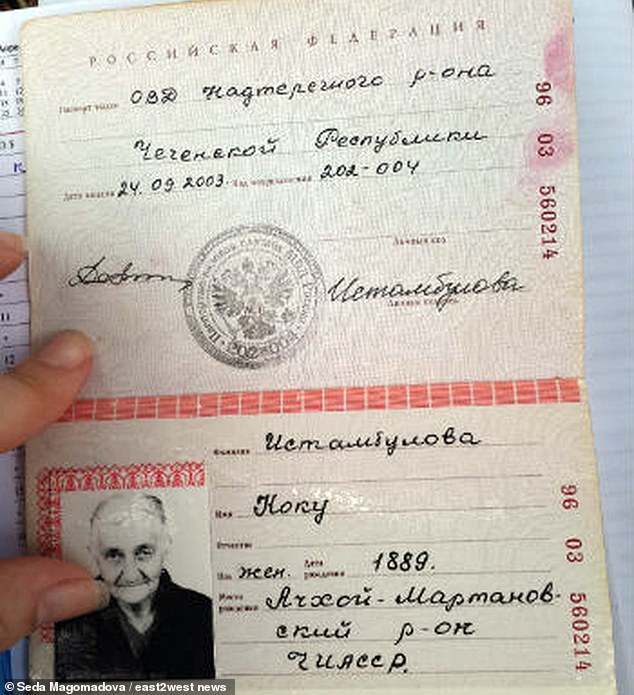 РОССИЙСКАЯ ФЕДЕРАЦИЯ
Паспорт выдан ОВД Надтеречного р-она
Чеченской Республики
Дата выдачи 24.09.2003. Код подразделения 202-004
Личный код
Истамбулова
Личная подпись
96 03 560214
Фамилия Истамбулова
Имя Коку
Отчество
Пол жен. Дата рождения 1889.
Место рождения Ачхой-Мартанов-
ский р-он
ЧИАССР.
96 03 560214
© Seda Magomadova / east2west news